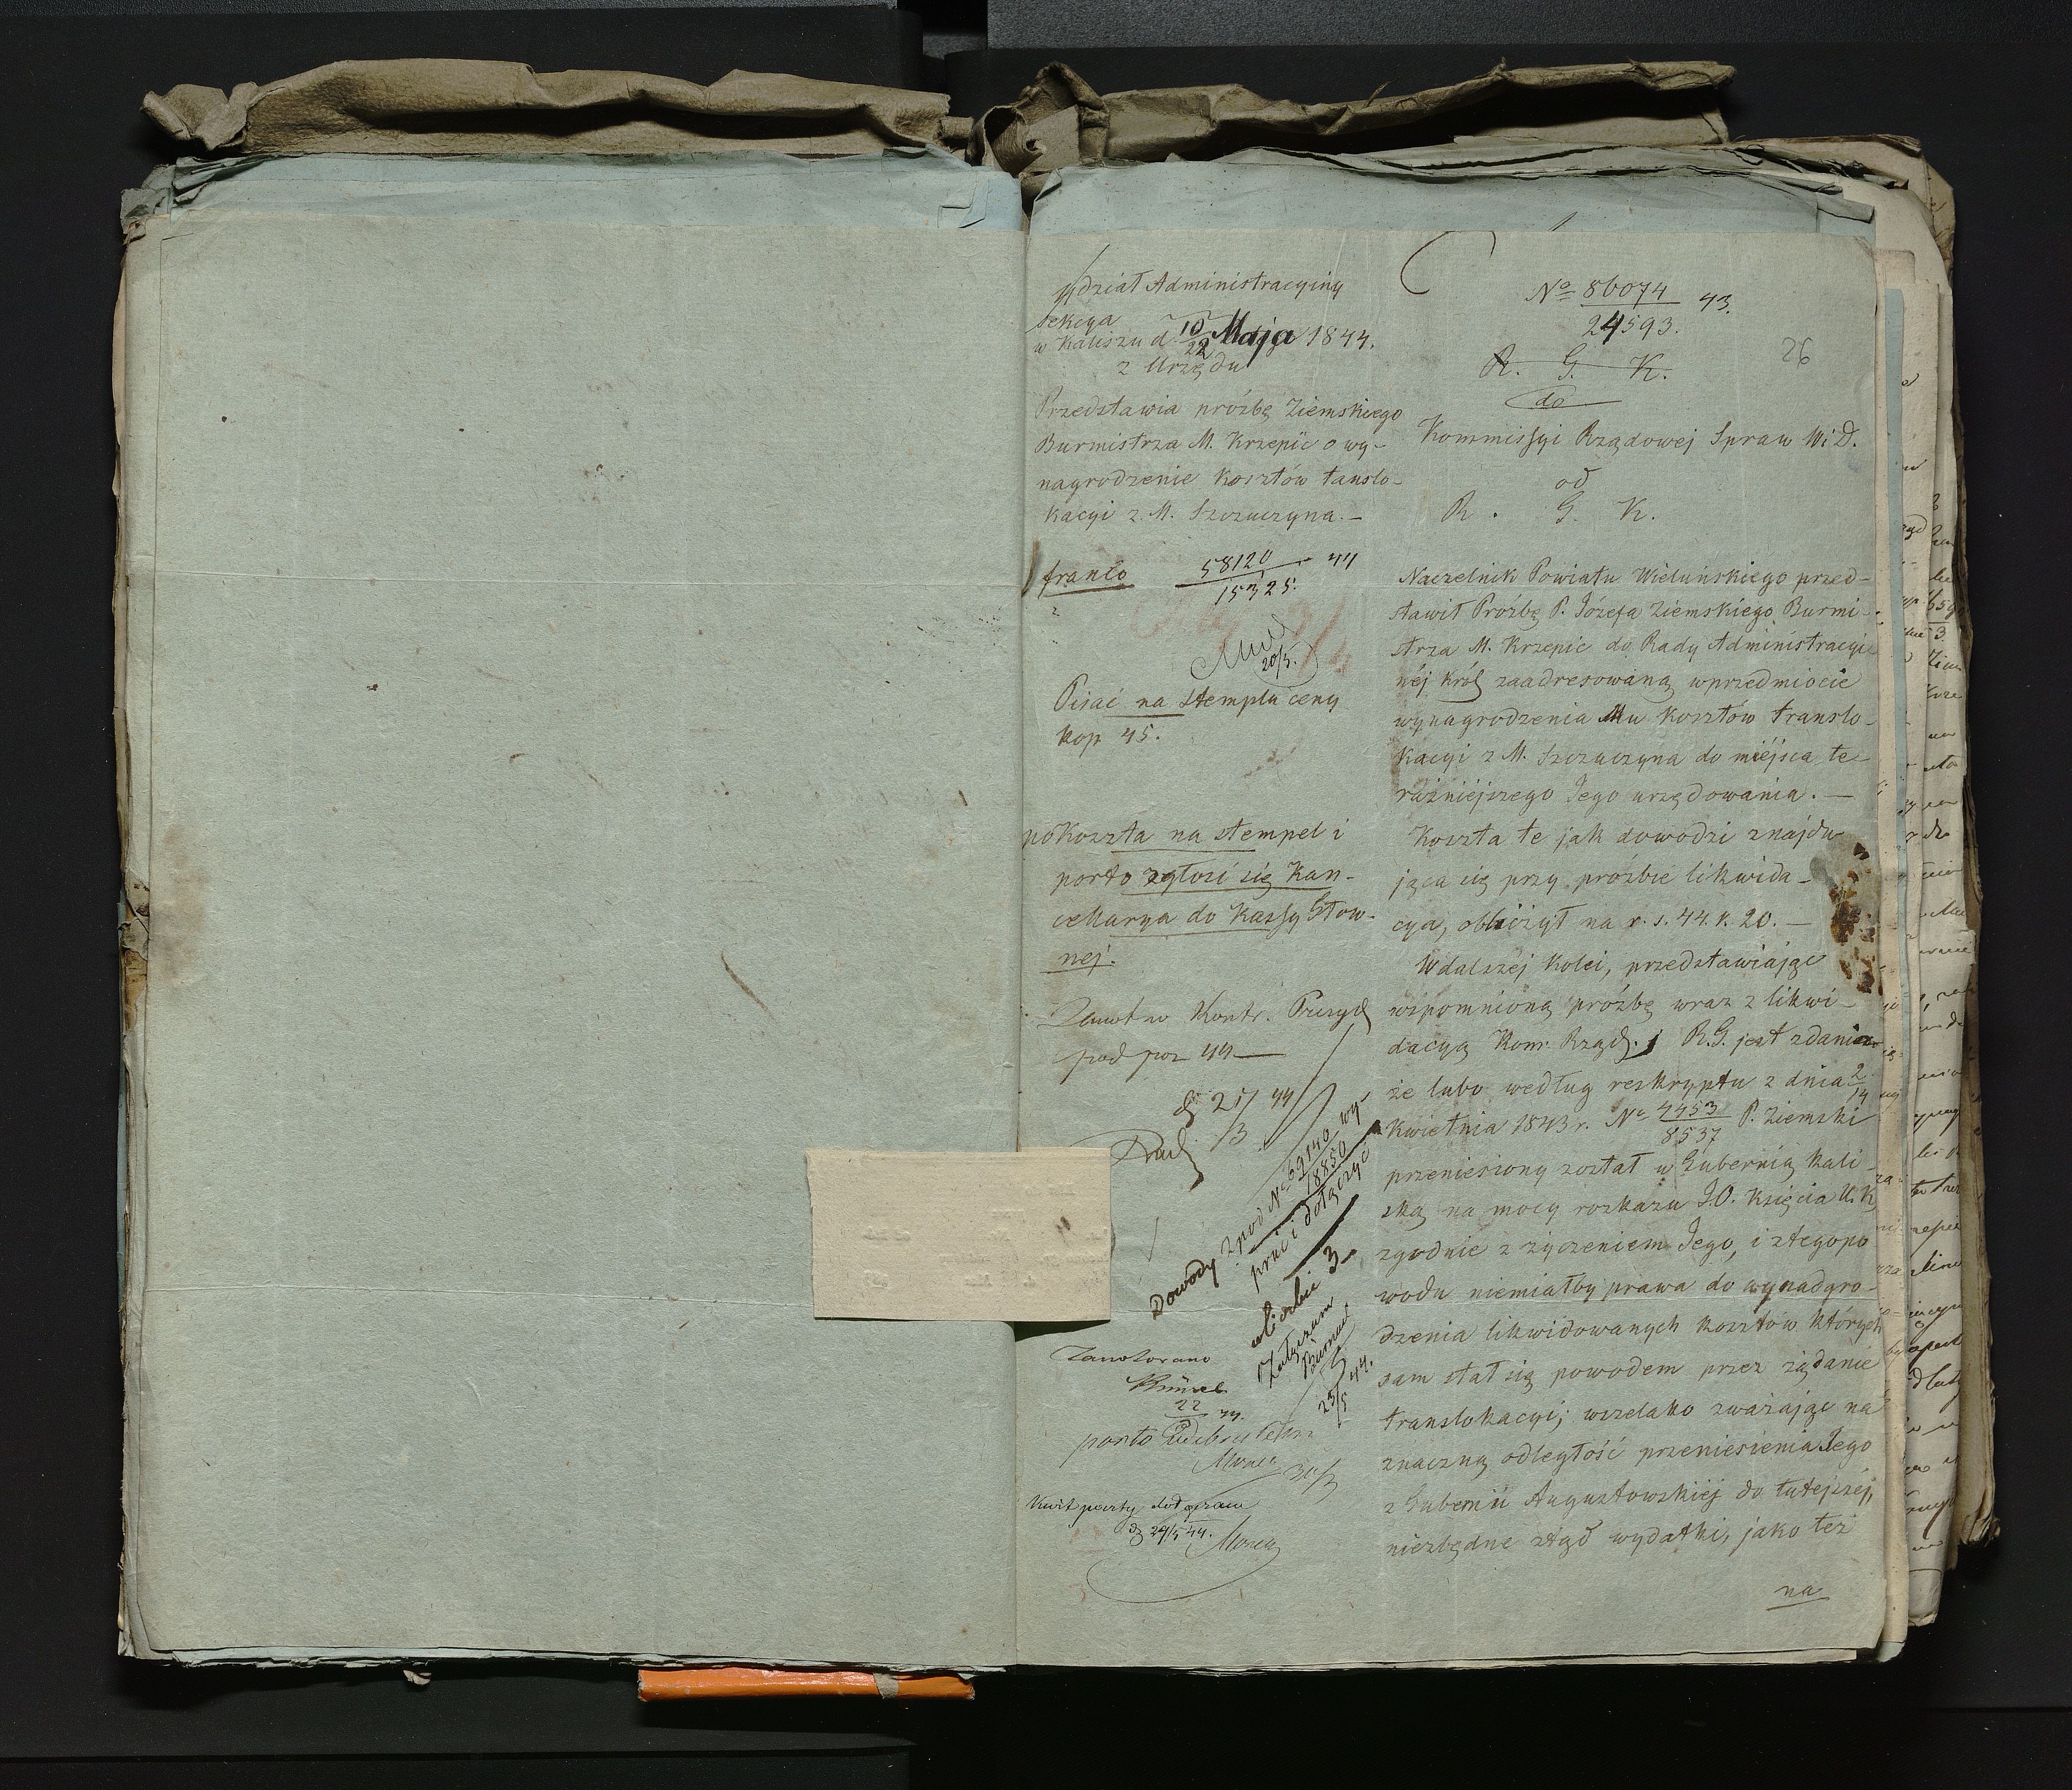 Wydział Administracyiny
Sekcya
w Kaliszu d. 10/22 Maja 1844.
z Urzędu
Przedstawia próźbę Ziemskiego
Burmistrza M. Krzepic o wy-
nagrodzenie kosztów tanslo-
kacyi z M. Szczuczyna. —
franco 58120/15325. 44
20/5.
Pisać na stemplu ceny
kop 45.
po Koszta na stempel i
porto zgłosi się Kan-
cellarya do Kassy Głow-
nej.
Zanotno Kontr. Prezyd
pod poz 44
d 21/3 44
Dowody z pod No 62140/18850 wy-
pruć i dołączyć
w liczbie 3
Załączam
23/5 44.
Zanotowano
22 44.
porto
Kwit poczty dołączam
d 24/5 44.
No 86074/24593. 43.
26
R. G. K.
do
Kommissyi Rządowej Spraw W i D.
od
R. G. K.
Naczelnik Powiatu Wieluńskiego przed-
stawił Próźbę P. Józefa Ziemskiego Burmi-
strza M. Krzepic do Rady Administracyi-
néj Król zaadresowaną w przedmiocie
wynagrodzenia Mu kosztów translo-
kacyi z M. Szczuczyna do miéjsca te-
raźniejszego Jego urzędowania. —
Koszta te jak dowodzi znajdu-
jąca się przy próźbie likwida-
cya, obliczył na r. s. 44. k. 20. —
W dalszéj kolei, przedstawiając
wspomnioną próźbę wraz z likwi-
dacyą Kom. Rząd. j R.G. jest zdania
że lubo według reskryptu z dnia 2/14
Kwietnia 1843 r. No 4453/8537 P. Ziemski
przeniesiony został w Gubernią Kali-
ską na mocy rozkazu J.O. Księcia N. K
zgodnie z życzeniem Jego, i z tego po
wodu niemiałby prawa do wynadgro-
dzenia likwidowanych kosztów których
sam stał się powodem przez żądanie
translokacyi; wszelako zważając na
znaczną odległość przeniesienia Jego
z Gubernii Augustowskiéj do tutejszej,
niezbędne ztąd wydatki, jako też
na